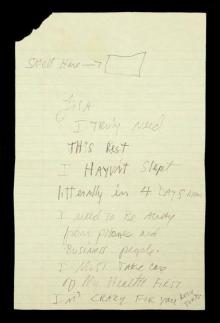 Smell Here →
Lisa
I Truly Need
THIS Rest
I HAVEN'T Slept
litterally in 4 DAYS now
I need to be Away
from phones and
BUSINESS people.
I Must TAKE CARE
OF My HEALTH FIRST
I'm CRAZY FOR you